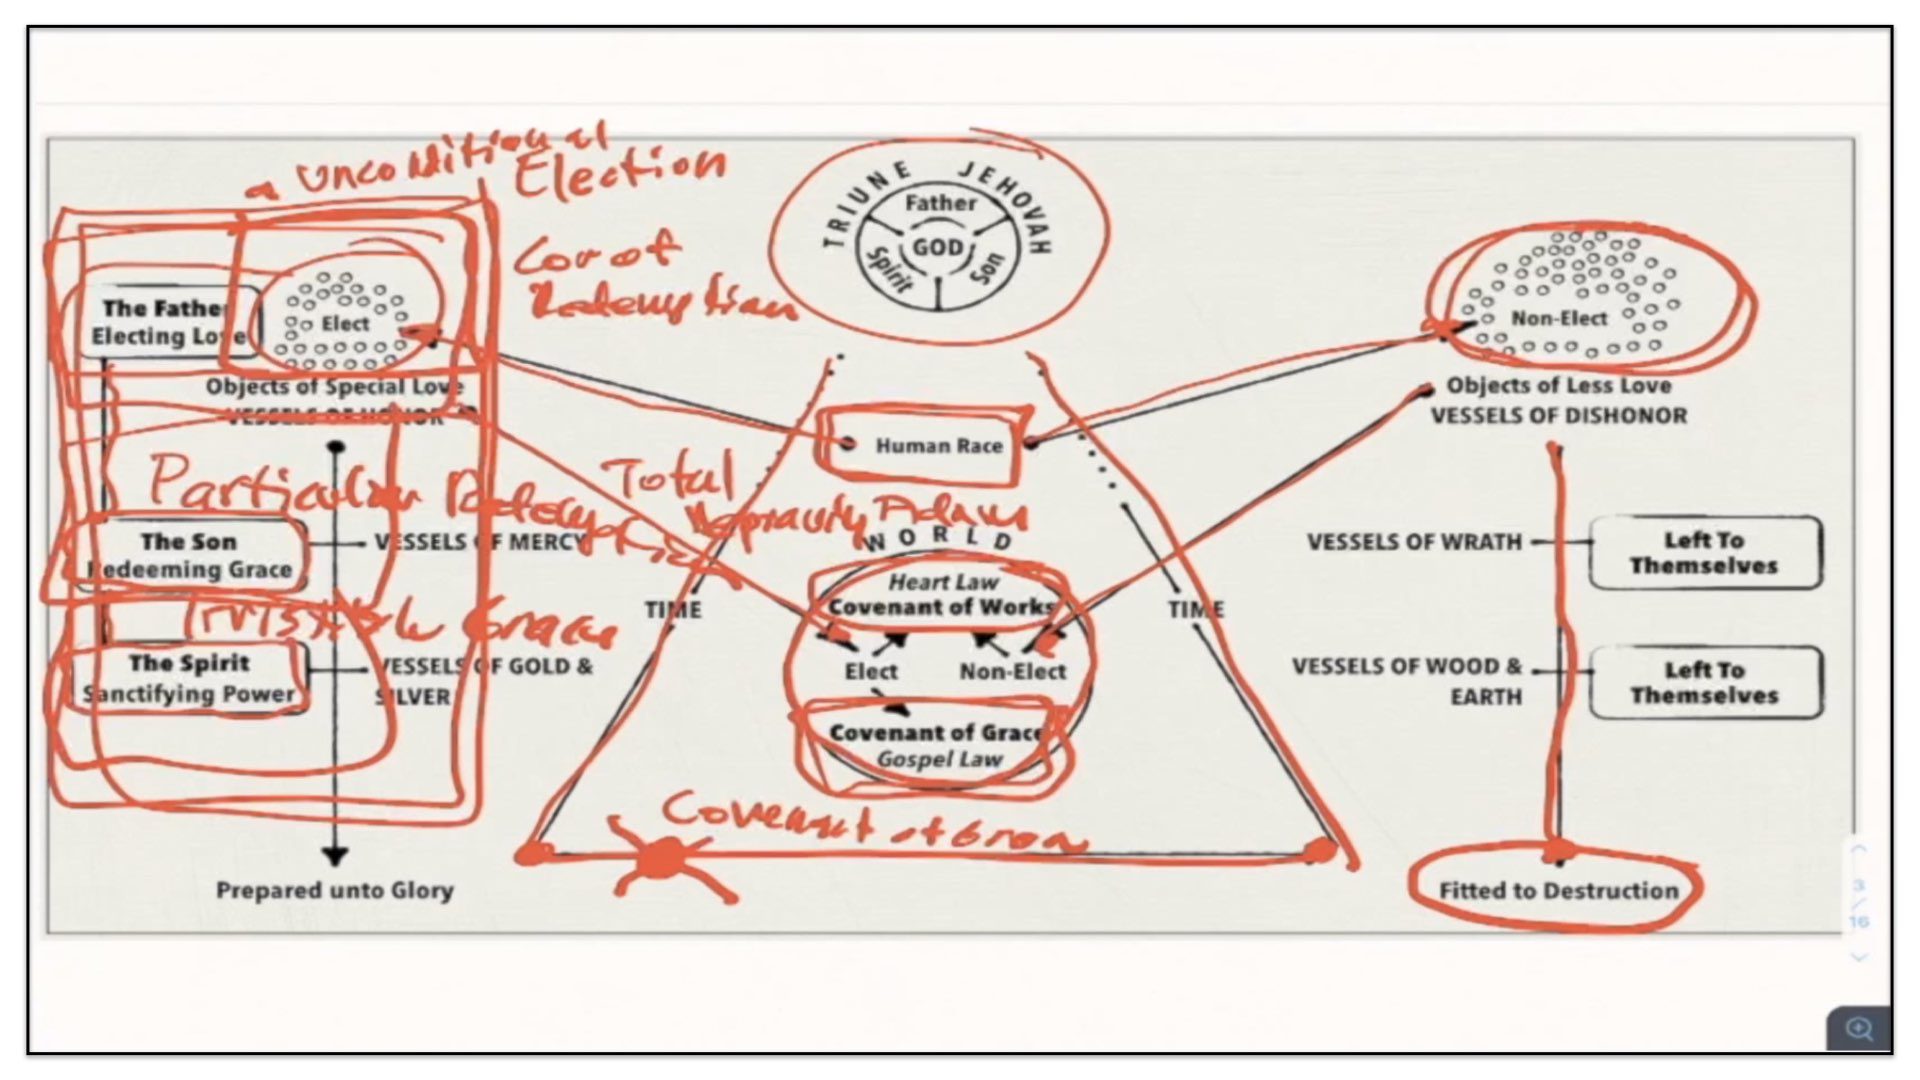 unconditional
Election
Cov of
Redemption
TRIUNE JEHOVAH
Father
GOD
Spirit
Son
The Father
Electing Love
Elect
Objects of Special Love
VESSELS OF HONOR
Non-Elect
Objects of Less Love
VESSELS OF DISHONOR
Human Race
Particular
Total
Depravity Adam
The Son
Redeeming Grace
VESSELS OF MERCY
WORLD
Heart Law
Covenant of Works
TIME
TIME
Elect
Non-Elect
Covenant of Grace
Gospel Law
VESSELS OF WRATH
Left To
Themselves
Grace
The Spirit
Sanctifying Power
VESSELS OF GOLD &
SILVER
VESSELS OF WOOD &
EARTH
Left To
Themselves
Covenant of
Prepared unto Glory
Fitted to Destruction
3
/
16